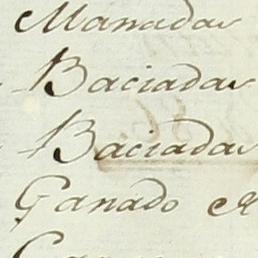 Manadas
Baciadas
Baciadas
Ganado